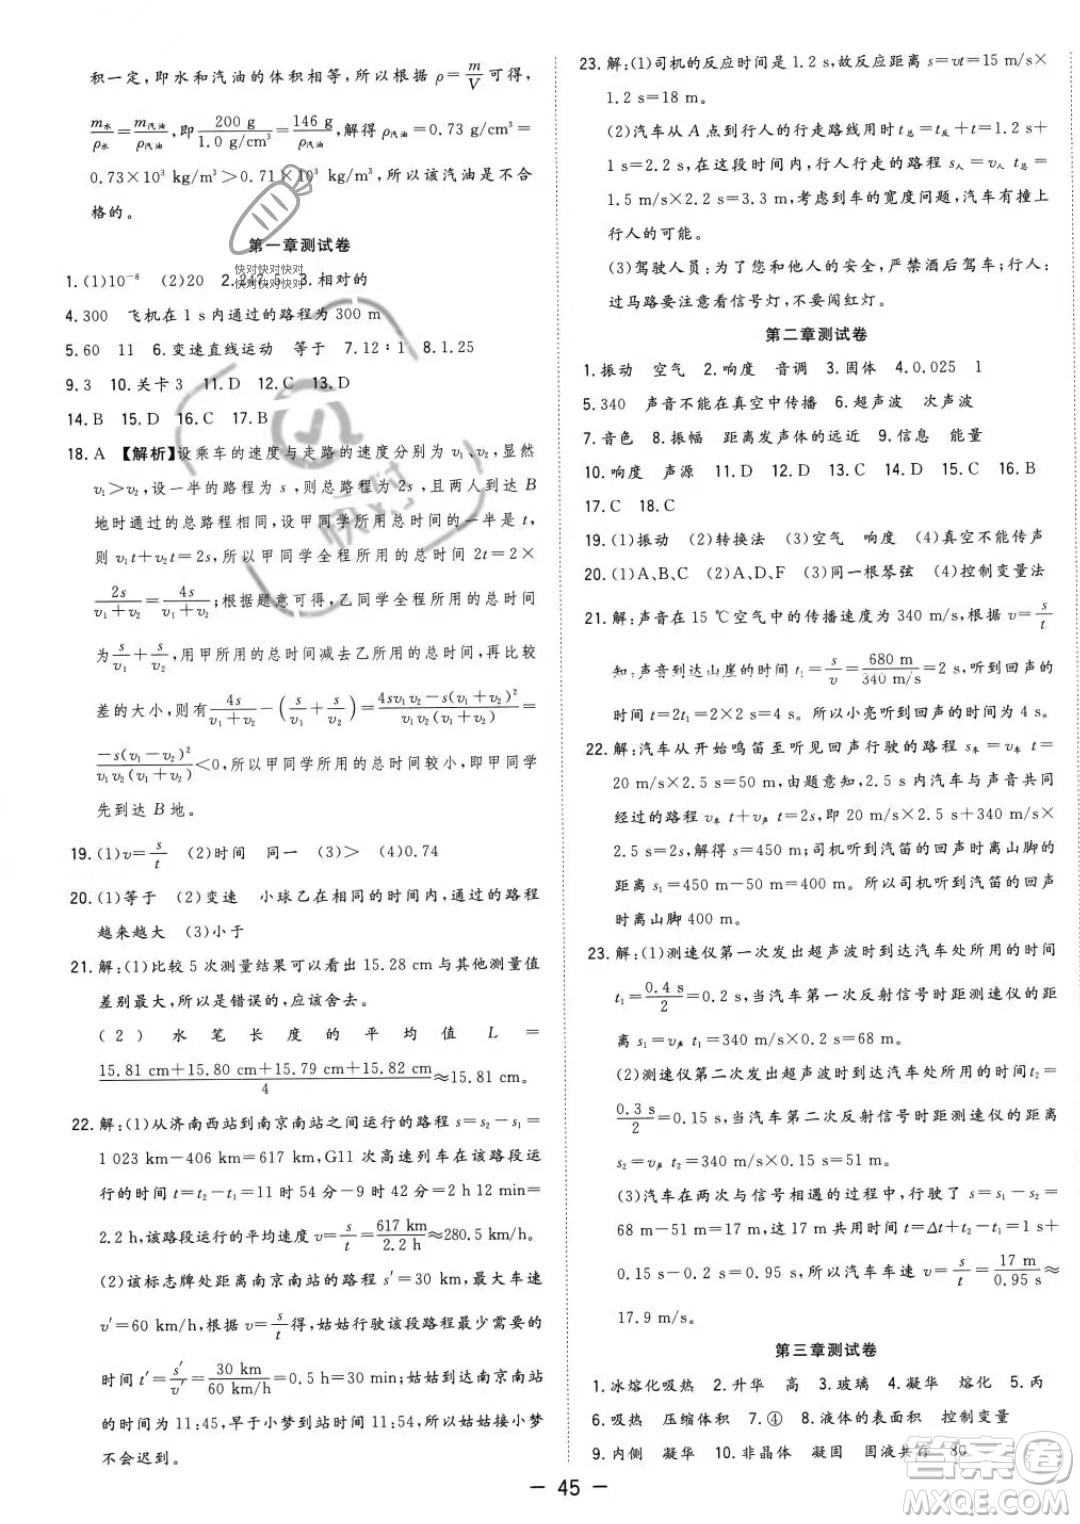 积一定,即水和汽油的体积相等,所以根据 ρ=m/V 可得,
m水/ρ水=m汽油/ρ汽油,即200 g/1.0 g/cm³=146 g/ρ汽油,解得 ρ汽油=0.73 g/cm³=
0.73×10³ kg/m³>0.71×10³ kg/m³,所以该汽油是不合
格的。
第一章测试卷
1.(1)10⁻⁸ (2)20 2.247.9 3.相对的
4.300 飞机在 1 s 内通过的路程为 300 m
5.60 11 6.变速直线运动 等于 7.12∶1 8.1.25
9.3 10.关卡 3 11.D 12.C 13.D
14.B 15.D 16.C 17.B
18.A 【解析】设乘车的速度与走路的速度分别为 v₁、v₂,显然
v₁>v₂,设一半的路程为 s,则总路程为 2s,且两人到达 B
地时通过的总路程相同,设甲同学所用总时间的一半是 t,
则 v₁t+v₂t=2s,所以甲同学全程所用的总时间 2t=2×
2s/(v₁+v₂)=4s/(v₁+v₂);根据题意可得,乙同学全程所用的总时间
为s/v₁+s/v₂,用甲所用的总时间减去乙所用的总时间,比较
差的大小,则有4s/(v₁+v₂)-(s/v₁+s/v₂)=(4sv₁v₂-s(v₁+v₂)²)/(v₁v₂(v₁+v₂))=
-s(v₁-v₂)²/v₁v₂(v₁+v₂)<0,所以甲同学所用的总时间较小,即甲同学
先到达 B 地。
19.(1)v=s/t (2)时间 同一 (3)> (4)0.74
20.(1)等于 (2)变速 小球乙在相同的时间内,通过的路程
越来越大 (3)小于
21.解:(1)比较 5 次测量结果可以看出 15.28 cm与其他测量值
差别最大,所以是错误的,应该舍去。
(2)水笔长度的平均值 L=
(15.81 cm+15.80 cm+15.79 cm+15.82 cm)/4≈15.81 cm。
22.解:(1)从济南西站到南京南站之间运行的路程 s=s₂-s₁=
1 023 km-406 km=617 km,G11 次高速列车在该路段运
行的时间 t=t₂-t₁=11 时 54 分-9 时 42 分=2 h 12 min=
2.2 h,该路段运行的平均速度 v=s/t=617 km/2.2 h≈280.5 km/h。
(2)该标志牌处距离南京南站的路程 s′=30 km,最大车速
v′=60 km/h,由 v=s/t得,姑姑行驶该段路程最少需要的时
间 t′=s′/v′=30 km/60 km/h=0.5 h=30 min,姑姑到达南京南站的
时间为 11:45,早于小梦到站时间 11:54,所以姑姑接小梦
不会迟到。
23.解:(1)司机的反应时间是 1.2 s,故反应距离 s=vt=15 m/s×
1.2 s=18 m。
(2)汽车从 A 点到行人的行走路线用时 t总=t反+t=1.2 s+
1 s=2.2 s,在这段时间内,行人行走的路程 s人=v人 t总=
1.5 m/s×2.2 s=3.3 m,考虑到车的宽度问题,汽车有撞上
行人的可能。
(3)驾驶人员:为了您和他人的安全,严禁酒后驾车;行人:
过马路要注意看信号灯,不要闯红灯。
第二章测试卷
1.振动 空气 2.响度 音调 3.固体 4.0.025 1
5.340 声音不能在真空中传播 6.超声波 次声波
7.音色 8.振幅 距离发声体的远近 9.信息 能量
10.响度 声源 11.D 12.D 13.C 14.C 15.C 16.B
17.C 18.C
19.(1)振动 (2)转换法 (3)空气 响度 (4)真空不能传声
20.(1)A、B、C (2)A、D、F (3)同一根琴弦 (4)控制变量法
21.解:声音在 15 ℃空气中的传播速度为 340 m/s,根据 v=s/t
知,声音到达山崖的时间 t₁=s/v=680 m/340 m/s=2 s,听到回声的
时间 t=2t₁=2×2 s=4 s。所以小亮听到回声的时间为 4 s。
22.解:汽车从开始鸣笛至听见回声行驶的路程 s车=v车 t=
20 m/s×2.5 s=50 m,由题意知,2.5 s 内汽车与声音共同
经过的路程 v车 t+v声 t=2s,即 20 m/s×2.5 s+340 m/s
×2.5 s=2s,解得 s=450 m;司机听到汽笛的回声时离山脚
的距离 s₁=450 m-50 m=400 m。所以司机听到汽笛的回声
时离山脚 400 m。
23.解:(1)测速仪第一次发出超声波时到达汽车处所用的时间
t₁=0.4 s/2=0.2 s,当汽车第一次反射信号时距测速仪的距
离 s₁=v声 t₁=340 m/s×0.2 s=68 m。
(2)测速仪第二次发出超声波时到达汽车处所用的时间 t₂=
0.3 s/2=0.15 s,当汽车第二次反射信号时距测速仪的距离
s₂=v声 t₂=340 m/s×0.15 s=51 m。
(3)汽车在两次与信号相遇的过程中,行驶了 s=s₁-s₂=
68 m-51 m=17 m,这 17 m 共用时间 t=Δt+t₂-t₁=1 s+
0.15 s-0.2 s=0.95 s,所以汽车车速 v=s/t=17 m/0.95 s≈
17.9 m/s。
第三章测试卷
1.冰熔化吸热 2.升华 高 3.玻璃 4.凝华 熔化 5.丙
6.吸热 压缩体积 7.④ 8.液体的表面积 控制变量
9.内侧 凝华 10.非晶体 凝固 固液共存 80
— 45 —
快对快对快对
快对快对快对
快对
答案卷
MXQE.COM